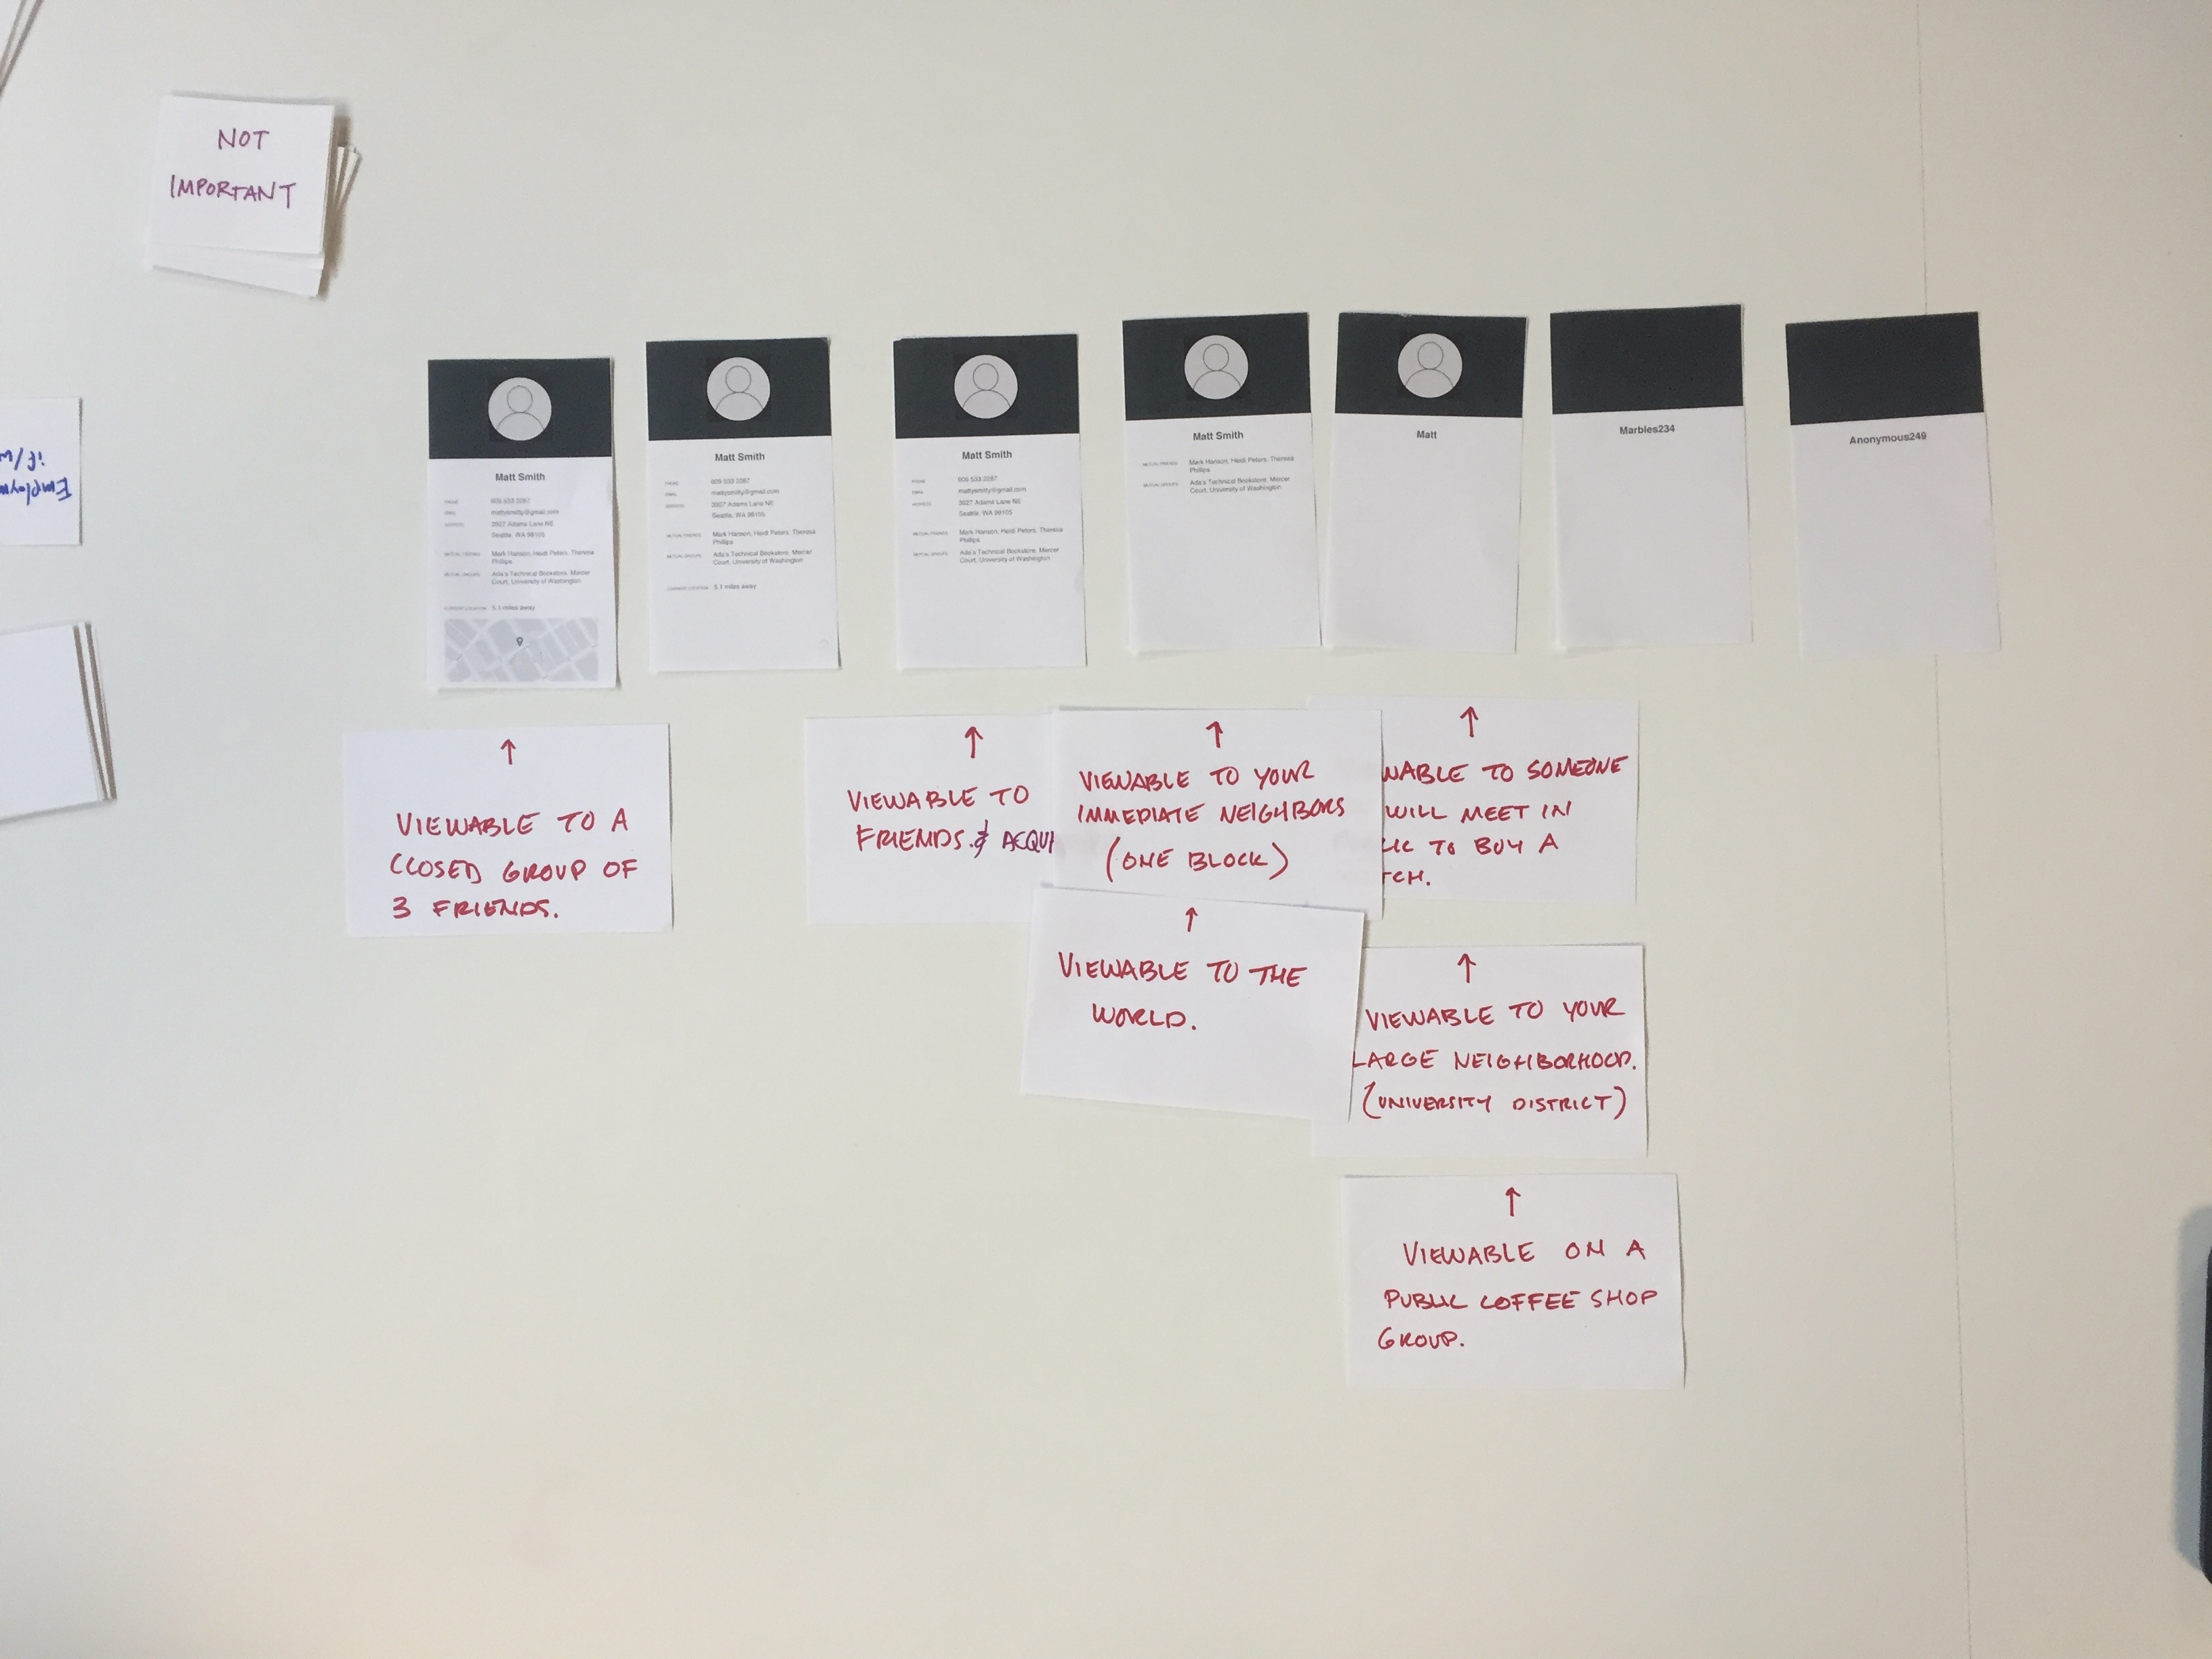 NOT
IMPORTANT
if/
Employm
Matt Smith
PHONE 609 533 2287
EMAIL mattysmitty@gmail.com
ADDRESS 3927 Adams Lane NE
Seattle, WA 98105
MUTUAL FRIENDS Mark Hanson, Heidi Peters, Theresa
Phillips
MUTUAL GROUPS Ada's Technical Bookstore, Mercer
Court, University of Washington
CURRENT LOCATION 5.1 miles away
Matt Smith
PHONE 609 533 2287
EMAIL mattysmitty@gmail.com
ADDRESS 3927 Adams Lane NE
Seattle, WA 98105
MUTUAL FRIENDS Mark Hanson, Heidi Peters, Theresa
Phillips
MUTUAL GROUPS Ada's Technical Bookstore, Mercer
Court, University of Washington
CURRENT LOCATION 5.1 miles away
Matt Smith
PHONE 609 533 2287
EMAIL mattysmitty@gmail.com
ADDRESS 3927 Adams Lane NE
Seattle, WA 98105
MUTUAL FRIENDS Mark Hanson, Heidi Peters, Theresa
Phillips
MUTUAL GROUPS Ada's Technical Bookstore, Mercer
Court, University of Washington
Matt Smith
MUTUAL FRIENDS Mark Hanson, Heidi Peters, Theresa
Phillips
MUTUAL GROUPS Ada's Technical Bookstore, Mercer
Court, University of Washington
Matt
Marbles234
Anonymous249
↑
VIEWABLE TO A
CLOSED GROUP OF
3 FRIENDS.
↑
VIEWABLE TO
FRIENDS. & ACQUI
↑
VIEWABLE TO YOUR
IMMEDIATE NEIGHBORS
(ONE BLOCK)
↑
WABLE TO SOMEONE
WILL MEET IN
LIC TO BUY A
TCH.
↑
VIEWABLE TO THE
WORLD.
↑
VIEWABLE TO YOUR
LARGE NEIGHBORHOOD.
(UNIVERSITY DISTRICT)
↑
VIEWABLE ON A
PUBLIC COFFEE SHOP
GROUP.